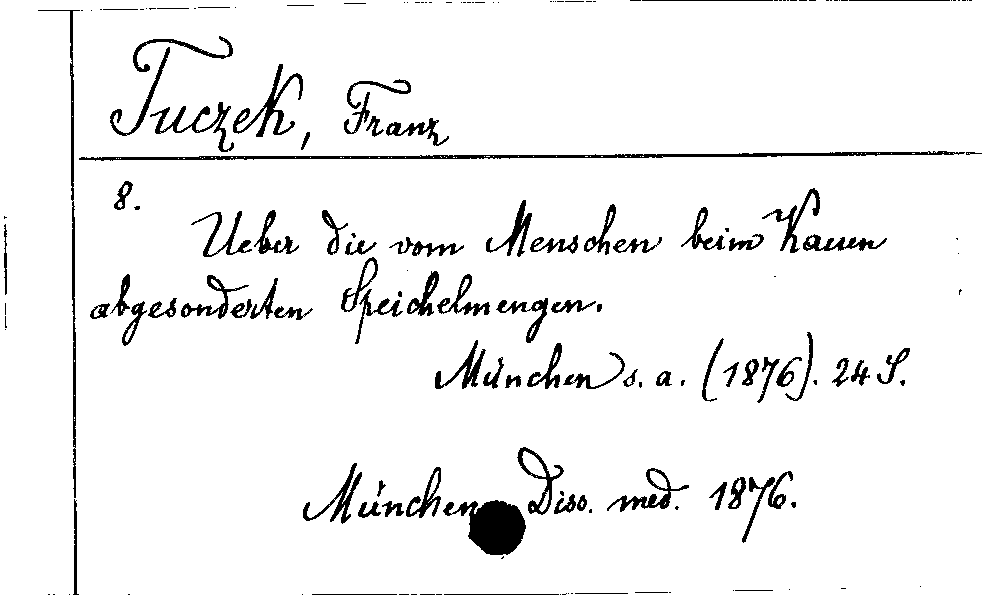 Tuczek, Franz
8.
Ueber die vom Menschen beim Kauen
abgesonderten Speichelmengen.
München s. a. (1876). 24 S.
München, Diss. med. 1876.